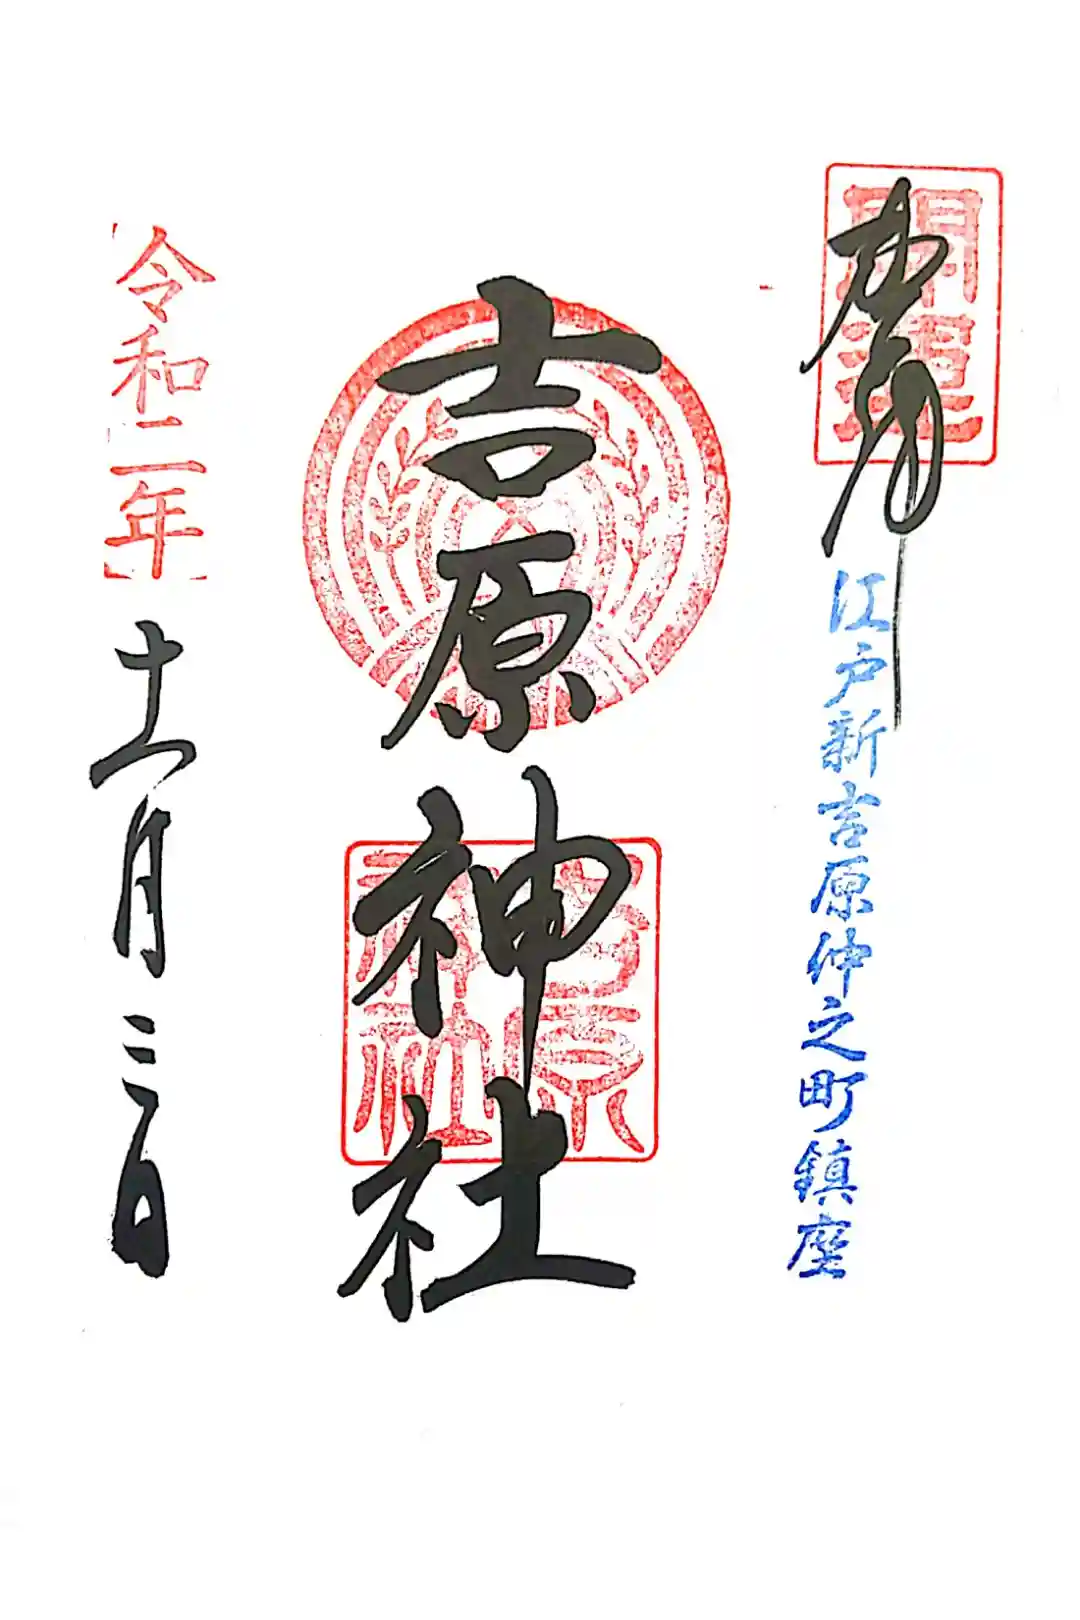 奉拝
開運
江戸新吉原仲之町鎮座
吉原神社
吉原神社
令和二年
十一月三日